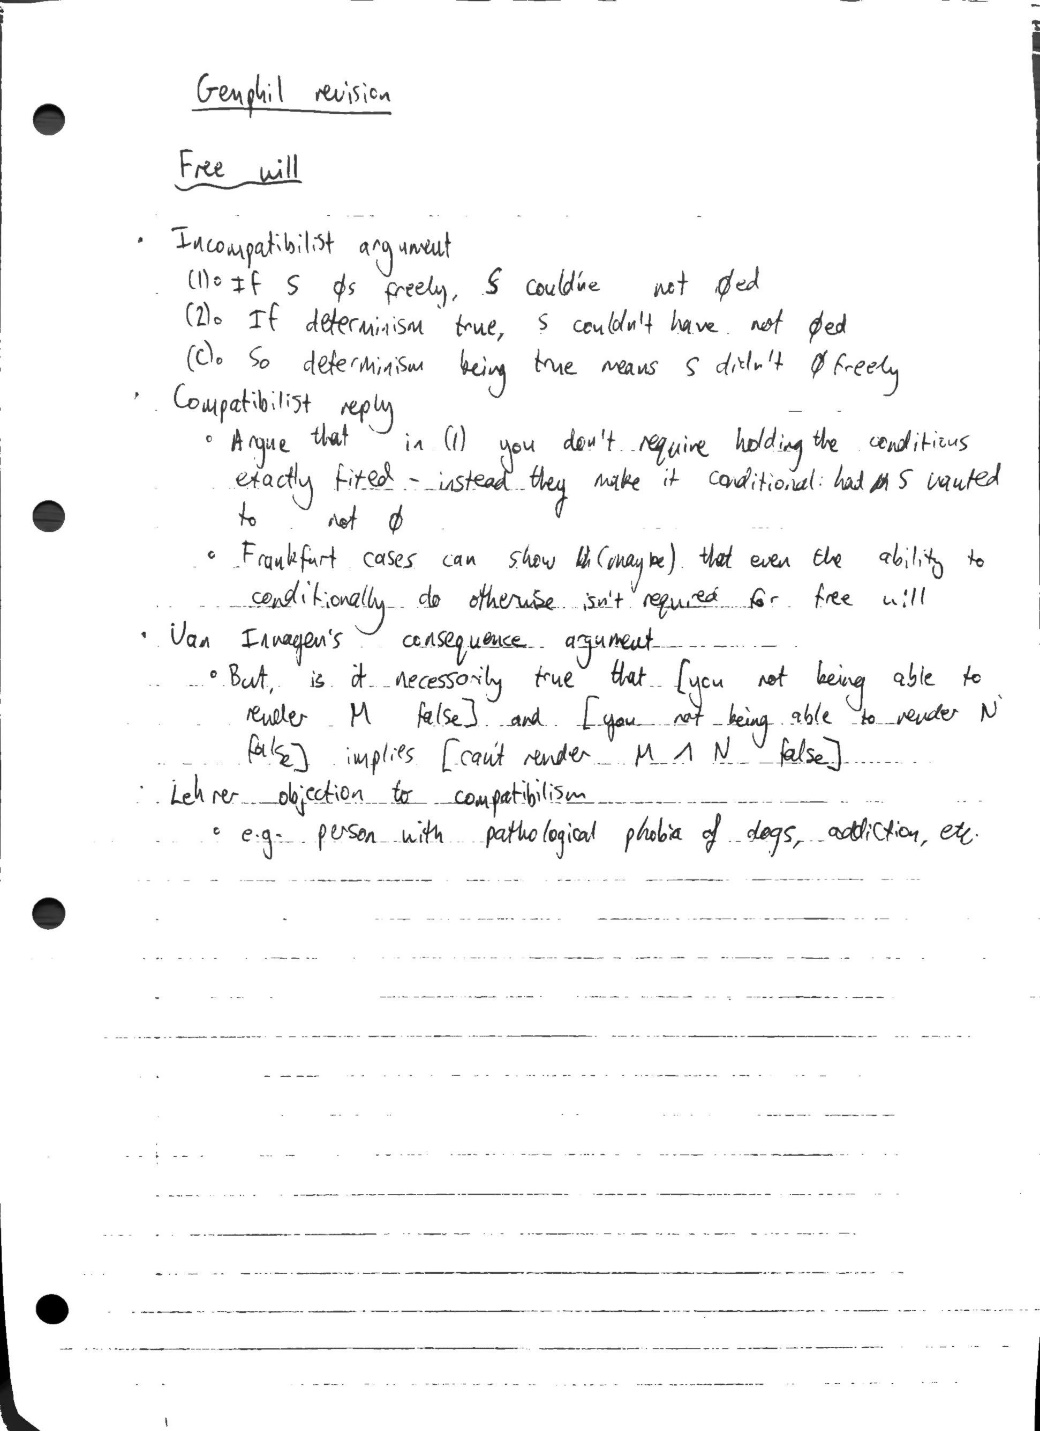 Genphil revision
Free will
• Incompatibilist argument
(1)∘ If S ϕs freely, S could've not ϕed
(2)∘ If determinism true, S couldn't have not ϕed
(C)∘ So determinism being true means S didn't ϕ freely
• Compatibilist reply
∘ Argue that in (1) you don't require holding the conditions
exactly fixed - instead they make it conditional: had S wanted
to not ϕ
∘ Frankfurt cases can show (maybe) that even the ability to
conditionally do otherwise isn't required for free will
• Van Inwagen's consequence argument
∘ But, is it necessarily true that [you not being able to
render M false] and [you not being able to render N
false] implies [can't render M ∧ N false]
• Lehrer objection to compatibilism
∘ e.g. person with pathological phobia of dogs, addiction, etc.